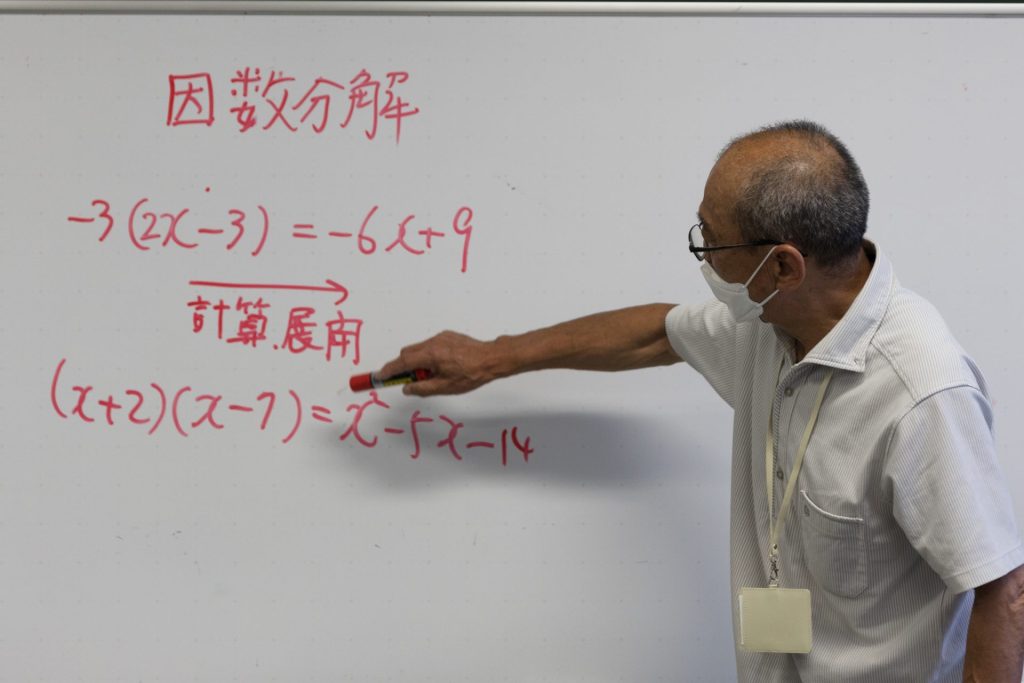 因数分解
-3(2x-3)=-6x+9
計算.展開
(x+2)(x-7)=x²-5x-14